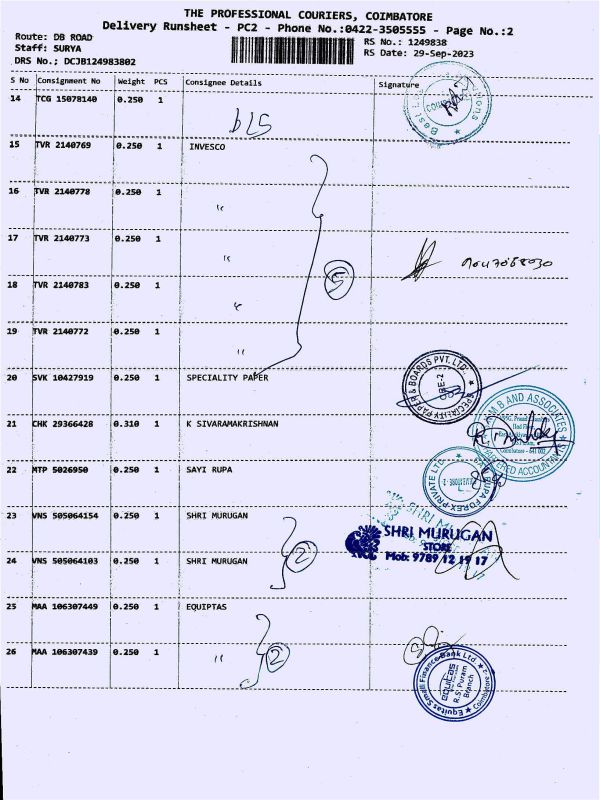 THE PROFESSIONAL COURIERS, COIMBATORE
Delivery Runsheet - PC2 - Phone No.:0422-3505555 - Page No.:2
Route: DB ROAD
Staff: SURYA
DRS No.; DCJB124983802
RS No.: 1249838
RS Date: 29-Sep-2023
S No Consignment No Weight PCS Consignee Details Signature
14 TCG 15078140 0.250 1
DLS
15 TVR 2140769 0.250 1 INVESCO
16 TVR 2140778 0.250 1 "
17 TVR 2140773 0.250 1 "
5
18 TVR 2140783 0.250 1 "
19 TVR 2140772 0.250 1 "
20 SVK 10427919 0.250 1 SPECIALITY PAPER
SPECIALITY PAPER & BOARDS PVT. LTD.
CBE-2
21 CHK 29366428 0.310 1 K SIVARAMAKRISHNAN
B AND ASSOCIATES
CHARTERED ACCOUNTANTS
22 MTP 5026950 0.250 1 SAYI RUPA
RUPA FOREX PRIVATE LTD
23 VNS 505064154 0.250 1 SHRI MURUGAN
SHRI MURUGAN
STORE
Mob: 9789 12 19 17
2
24 VNS 505064103 0.250 1 SHRI MURUGAN
25 MAA 106307449 0.250 1 EQUIPTAS
26 MAA 106307439 0.250 1 "
2
Equitas Small Finance Bank Ltd
equitas
R.S. Puram
Branch
Coimbatore-2